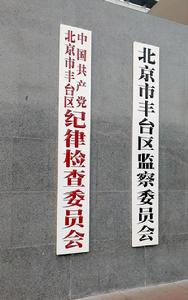 中国共产党
北京市丰台区
纪律检查委员会
北京市丰台区监察委员会